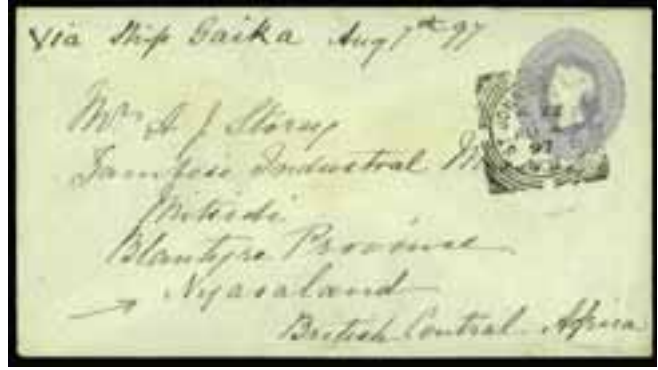 Via Ship Gaika Aug 7th 97
Mrs A J Storey
Industrial
Mitsidi
Blantyre Province
Nyasaland
British Central Africa